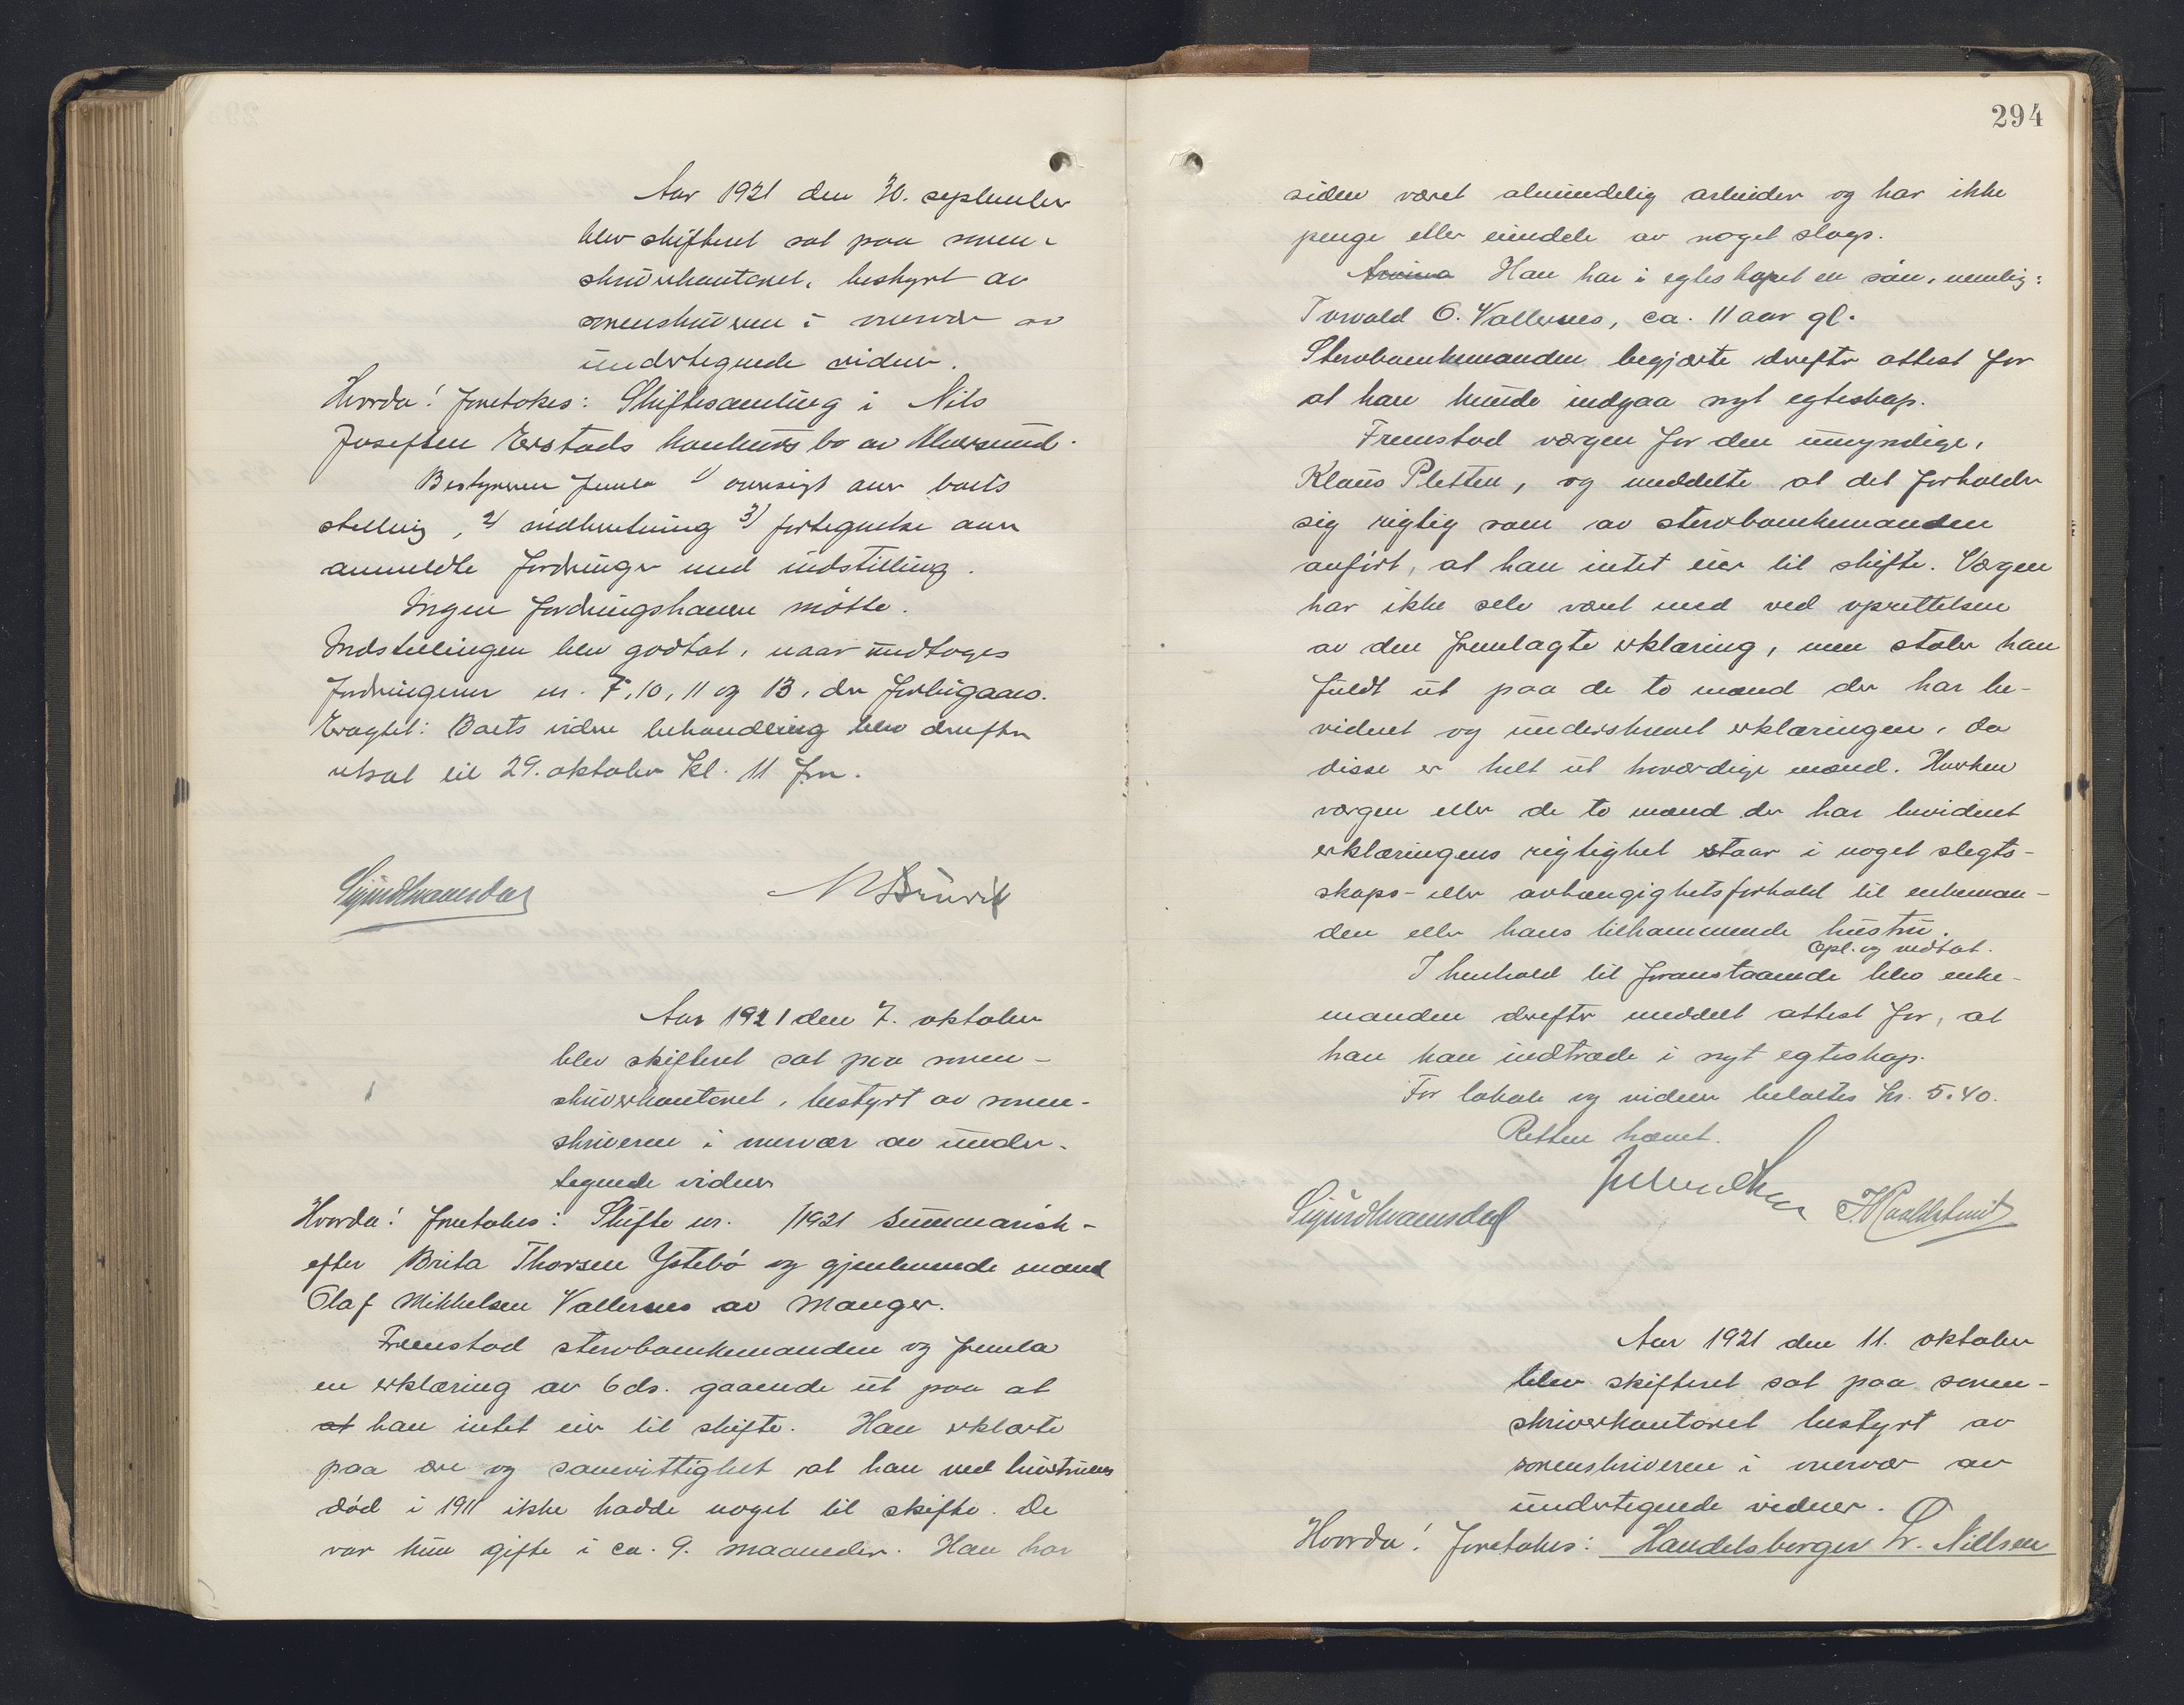 Aar 1921 den 30. september
blev skifteret sat paa soren-
skriverkontoret, bestyrt av
sorenskriveren i overvær av
undertegnede vidner.
Hvorda! foretokes: Skiftesamling i Nils
Josefsen Erstads konkurs bo av Alversund.
Bestyreren fremla 1) oversigt over boets
stilling, 2) indberetning 3) fortegnelse over
anmeldte fordringer med indstilling.
Ingen fordringshaver møtte.
Indstillingen blev godtat, naar undtoges
fordringerne nr. 7, 10, 11 og 13, der forbigaaes.
Eragtet: Boets videre behandling blev derefter
utsat til 29. oktober kl. 11 fm.
Sigurd Kvamsdal
Aar 1921 den 7. oktober
blev skifteret sat paa soren-
skriverkontoret, bestyrt av soren-
skriveren i overvær av under-
tegnede vidner
Hvorda! foretokes: Skifte nr. /1921 summarisk-
efter Brita Thorsen Ystebø og gjenlevende mand
Olaf Mikkelsen Vallersnes av Manger.
Fremstod stervboenkemanden og fremla
en erklæring av 6 ds. gaaende ut paa at
at han intet eier til skifte. Han erklærte
paa ære og samvittighet at han ved hustruens
død i 1911 ikke hadde noget til skifte. De
var kun gifte i ca. 9. maaneder. Han har
294
siden været almindelig arbeider og har ikke
penge eller eiendele av noget slags.
Han har i egteskapet en søn, nemlig:
Torvald O. Vallersnes, ca. 11 aar gl.
Stervboenkemanden begjærte derefter attest for
at han kunde indgaa nyt egteskap.
Fremstod værgen for den umyndige,
Klaus Pletten, og meddelte at det forholder
sig rigtig som av stervboenkemanden
anført, at han intet eier til skifte. Værgen
har ikke selv været med ved oprettelsen
av den fremlagte erklæring, men stoler han
fuldt ut paa de to mænd der har be-
vidnet og underskrevet erklæringen, da
disse er helt ut troværdige mænd. Hverken
værgen eller de to mænd der har bevidnet
erklæringens rigtighet staar i noget slegts-
skaps- eller avhængighetsforhold til enkeman-
den eller hans tilkommende hustru.
Opl. og vedtat.
I henhold til foranstaaende blev enke-
manden derefter meddelt attest for, at
han kan indtræde i nyt egteskap.
For lokale og vidner betaltes kr. 5.40.
Retten hævet.
Sigurd Kvamsdal
Aar 1921 den 11. oktober
blev skifteret sat paa soren-
skriverkontoret bestyrt av
sorenskriveren i overvær av
undertegnede vidner.
Hvorda! foretokes: Handelsborger Dr. Nillsen